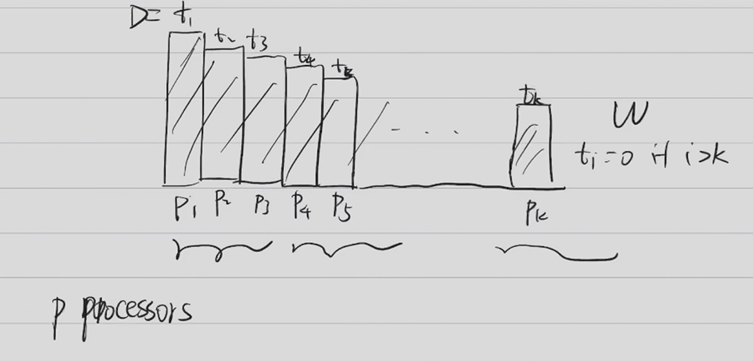 D= t₁
t₂ t₃ t₄ t₅ - . . . tₖ
W
tᵢ=0 if i>k
P₁ P₂ P₃ P₄ P₅ Pₖ
P processors